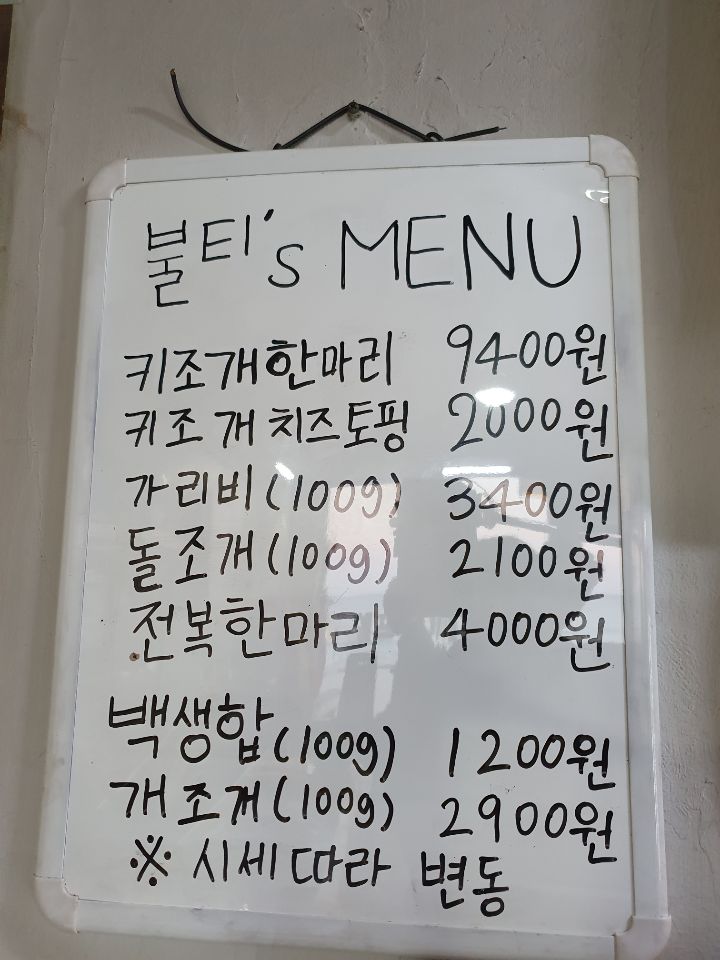 불티's MENU
키조개한마리 9400원
키조개 치즈토핑 2000원
가리비(100g) 3400원
돌조개(100g) 2100원
전복한마리 4000원
백생합(100g) 1200원
개조개(100g) 2900원
※ 시세따라 변동